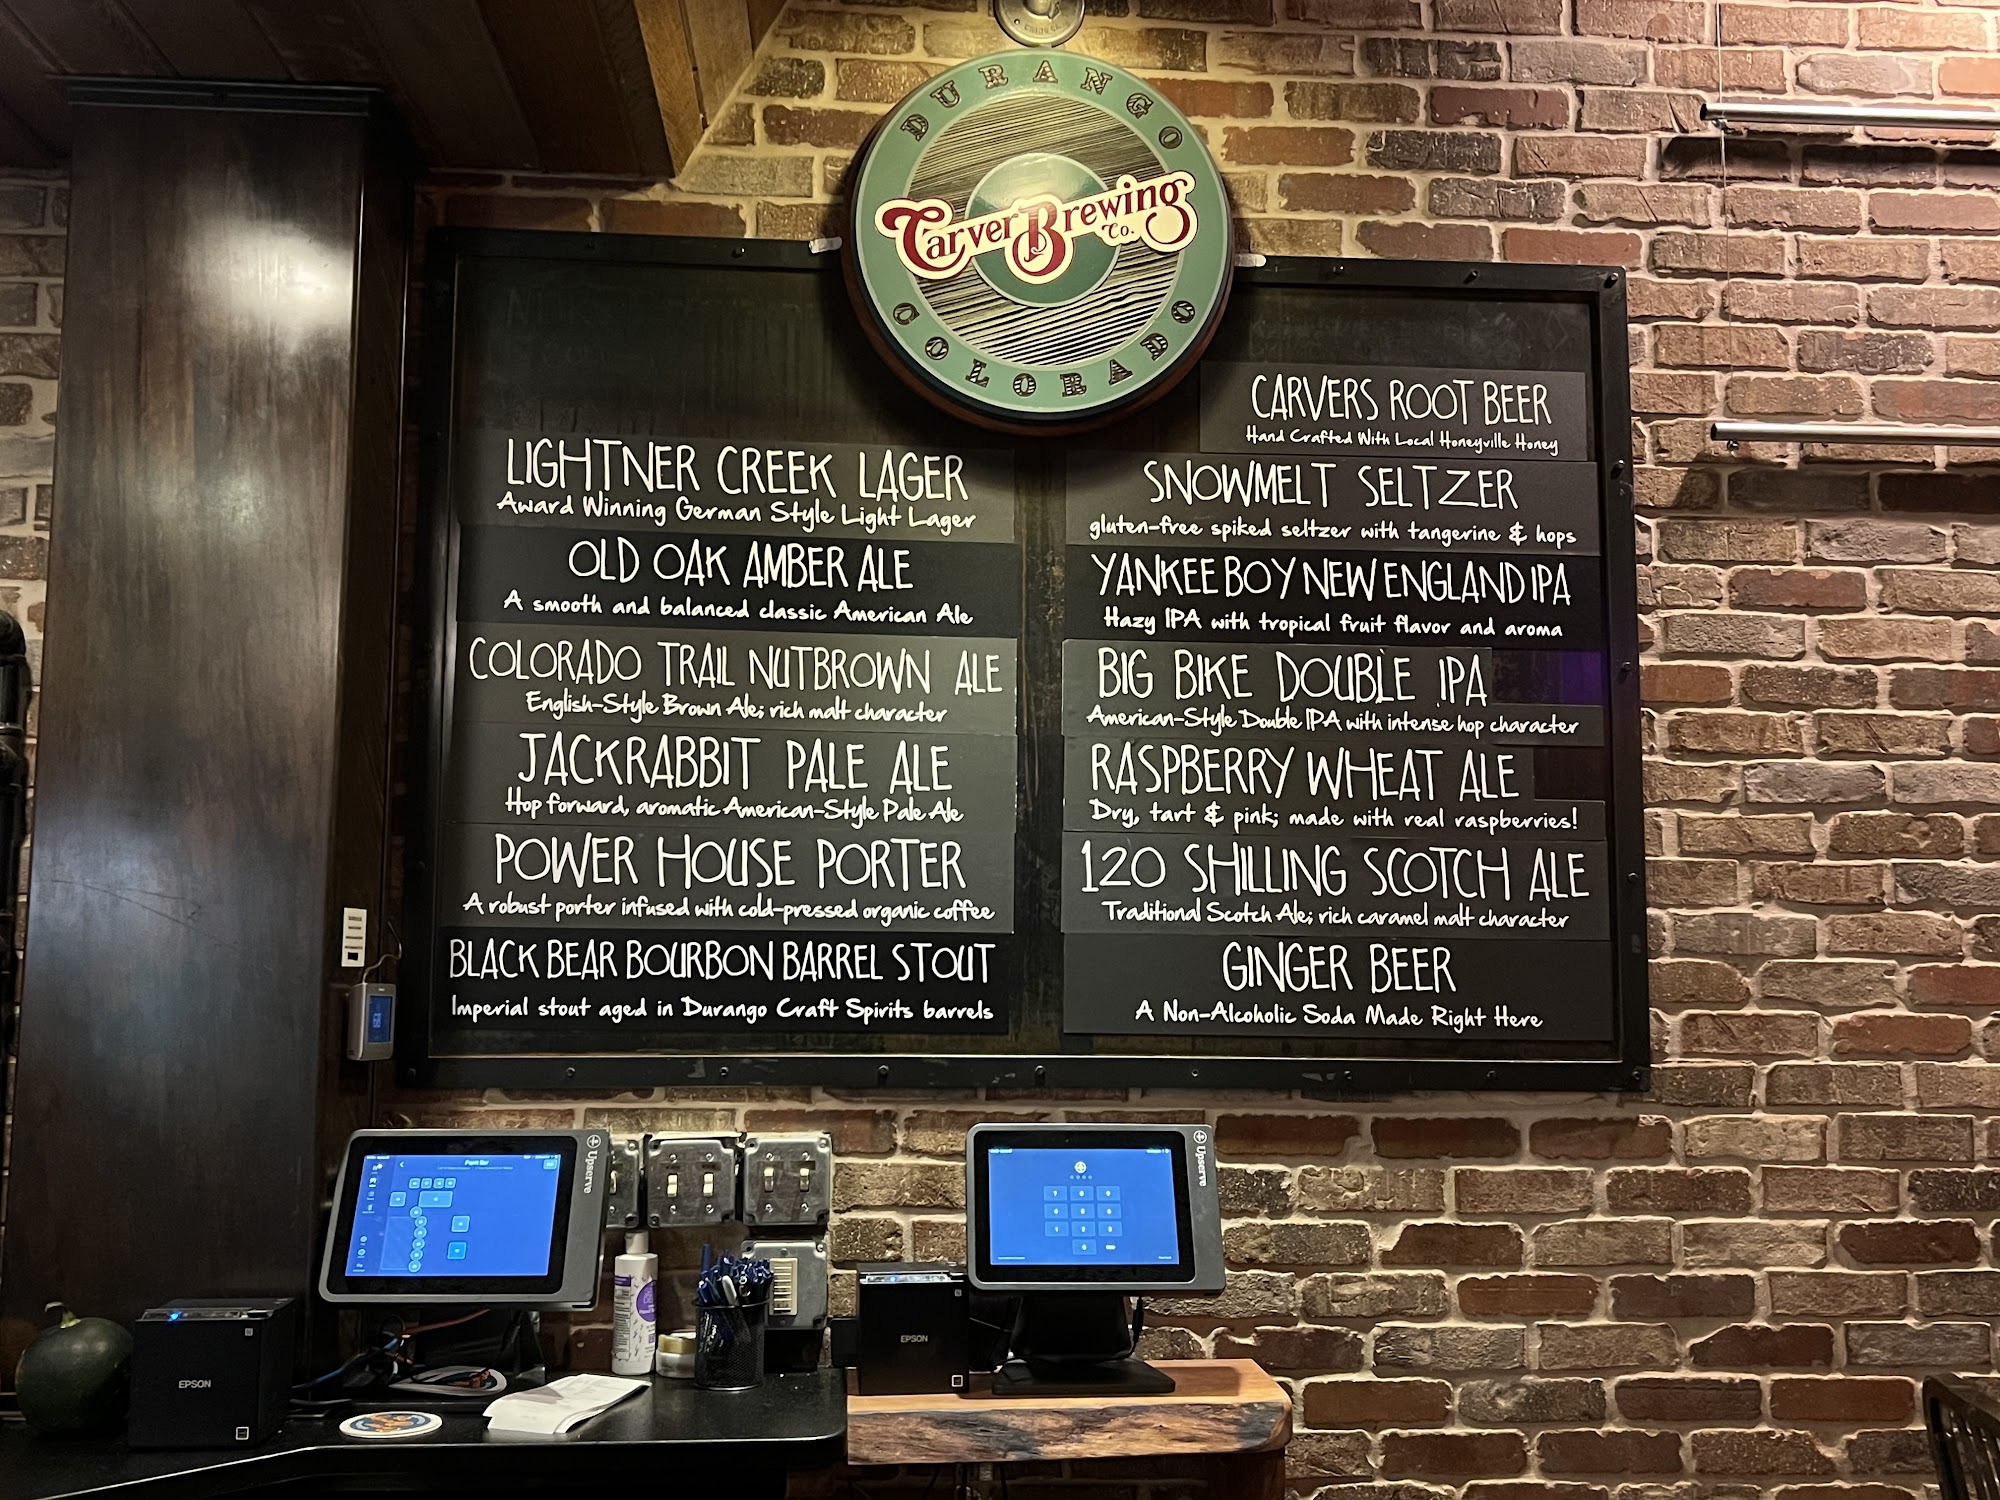 DURANGO
Carver Brewing
Co.
COLORADO
LIGHTNER CREEK LAGER
Award Winning German Style Light Lager
OLD OAK AMBER ALE
A smooth and balanced classic American Ale
COLORADO TRAIL NUTBROWN ALE
English-Style Brown Ale; rich malt character
JACKRABBIT PALE ALE
Hop forward, aromatic American-Style Pale Ale
POWER HOUSE PORTER
A robust porter infused with cold-pressed organic coffee
BLACK BEAR BOURBON BARREL STOUT
Imperial stout aged in Durango Craft Spirits barrels
CARVERS ROOT BEER
Hand Crafted With Local Honeyville Honey
SNOWMELT SELTZER
gluten-free spiked seltzer with tangerine & hops
YANKEE BOY NEW ENGLAND IPA
Hazy IPA with tropical fruit flavor and aroma
BIG BIKE DOUBLE IPA
American-Style Double IPA with intense hop character
RASPBERRY WHEAT ALE
Dry, tart & pink; made with real raspberries!
120 SHILLING SCOTCH ALE
Traditional Scotch Ale; rich caramel malt character
GINGER BEER
A Non-Alcoholic Soda Made Right Here
Upserve
Upserve
EPSON
EPSON